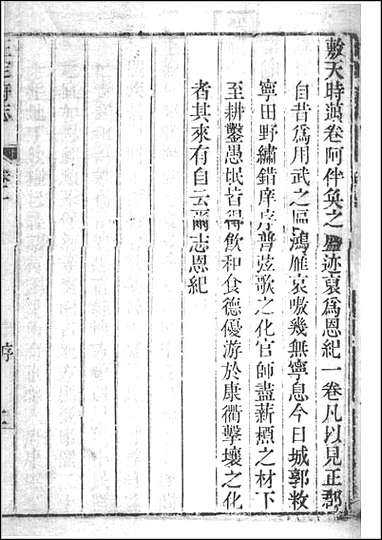 敷天時澦卷阿伴奐之勝迹裒爲恩紀一卷凡以見正郡
自昔爲用武之區鴻雁哀嗷幾無寧息今日城郭救
寧田野繡錯庠序普弦歌之化官師盡薪槱之材下
至耕鑿愚氓皆得飲和食德優游於康衢擊壤之化
者其來有自云爾志恩紀
正定府志
卷一
序
二